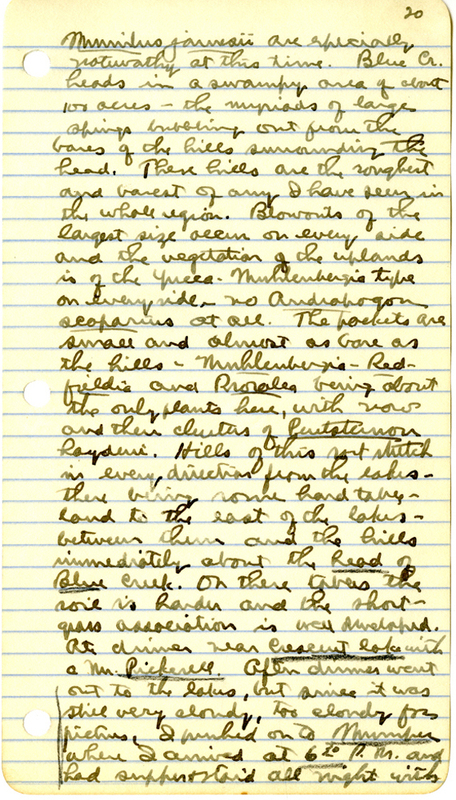 20
Mimulus jamesii are specially
noteworthy at this time. Blue Cr.
heads in a swampy area of about
100 acres - the myriads of large
springs bubbling out from the
bases of the hills surrounding the
head. These hills are the roughest
and barest of any I have seen in
the whole region. Blowouts of the
largest size occur on every side
and the vegetation of the uplands
is of the Yucca-Muhlenbergia type
on every side - no Andropogon
scoparius at all. The pockets are
small and almost as bare as
the hills - Muhlenbergia - Red-
fieldia and Psoralea being about
the only plants here, with now
and then clusters of Pentstemon
haydeni. Hills of this sort stretch
in every direction from the lakes -
there being some hard table-
land to the east of the lakes -
between them and the hills
immediately about the head of
Blue Creek. On these tables the
soil is harder and the short-
grass association is well developed.
Ate dinner near Crescent Lake with
a Mr. Pickerell. After dinner went
out to the lakes, but since it was
still very cloudy, too cloudy for
pictures, I pushed on to Mumper
where I arrived at 6:30 P.M. and
had supper & staid all night with